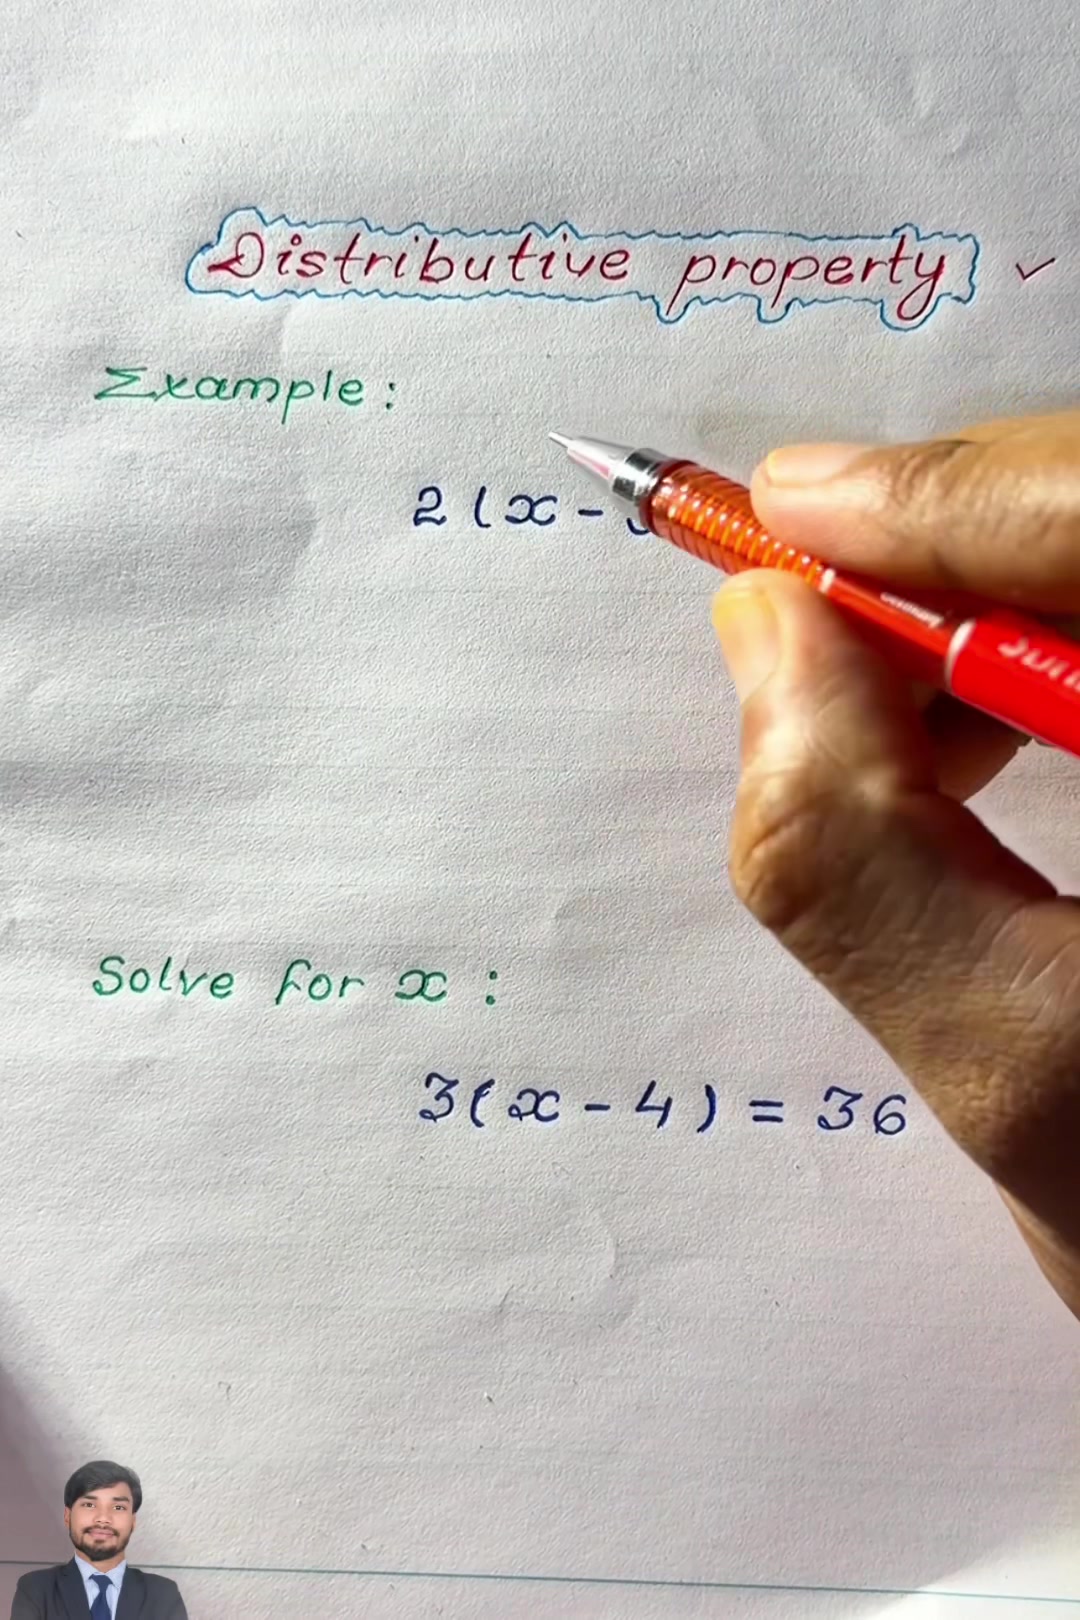 Distributive property ✓
Example :
2 ( x -
Solve for x :
3( x - 4 ) = 36